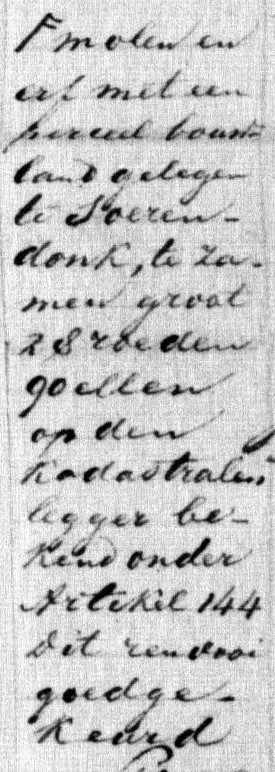 F molen en
erf met een
perceel bouw-
land gelegen
te Soeren-
donk, te za-
men groot
28 roeden
90 ellen
op den
Kadastralen
legger be-
kend onder
Artikel 144
Dit renvooi
goedge-
keurd